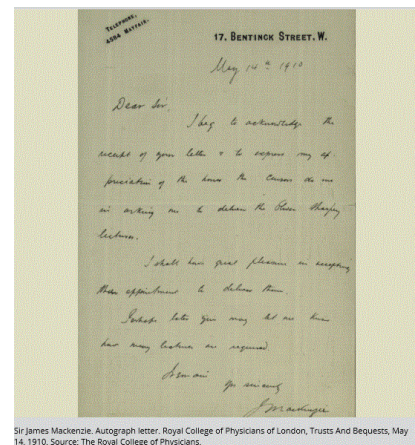 TELEPHONE,
4594 MAYFAIR.
17. BENTINCK STREET. W.
May 14th 1910
Dear Sir.
I beg to acknowledge the
receipt of your letter & to express my ap
preciation of the honor the Censors do me
in asking me to deliver the Oliver Sharpey
lectures.
I shall have great pleasure in accepting
appointment to deliver them.
Perhaps later you may let me know
how many lectures are required.
I remain
yrs sincerely
J Mackenzie
Sir James Mackenzie. Autograph letter. Royal College of Physicians of London, Trusts And Bequests, May
14, 1910. Source: The Royal College of Physicians.